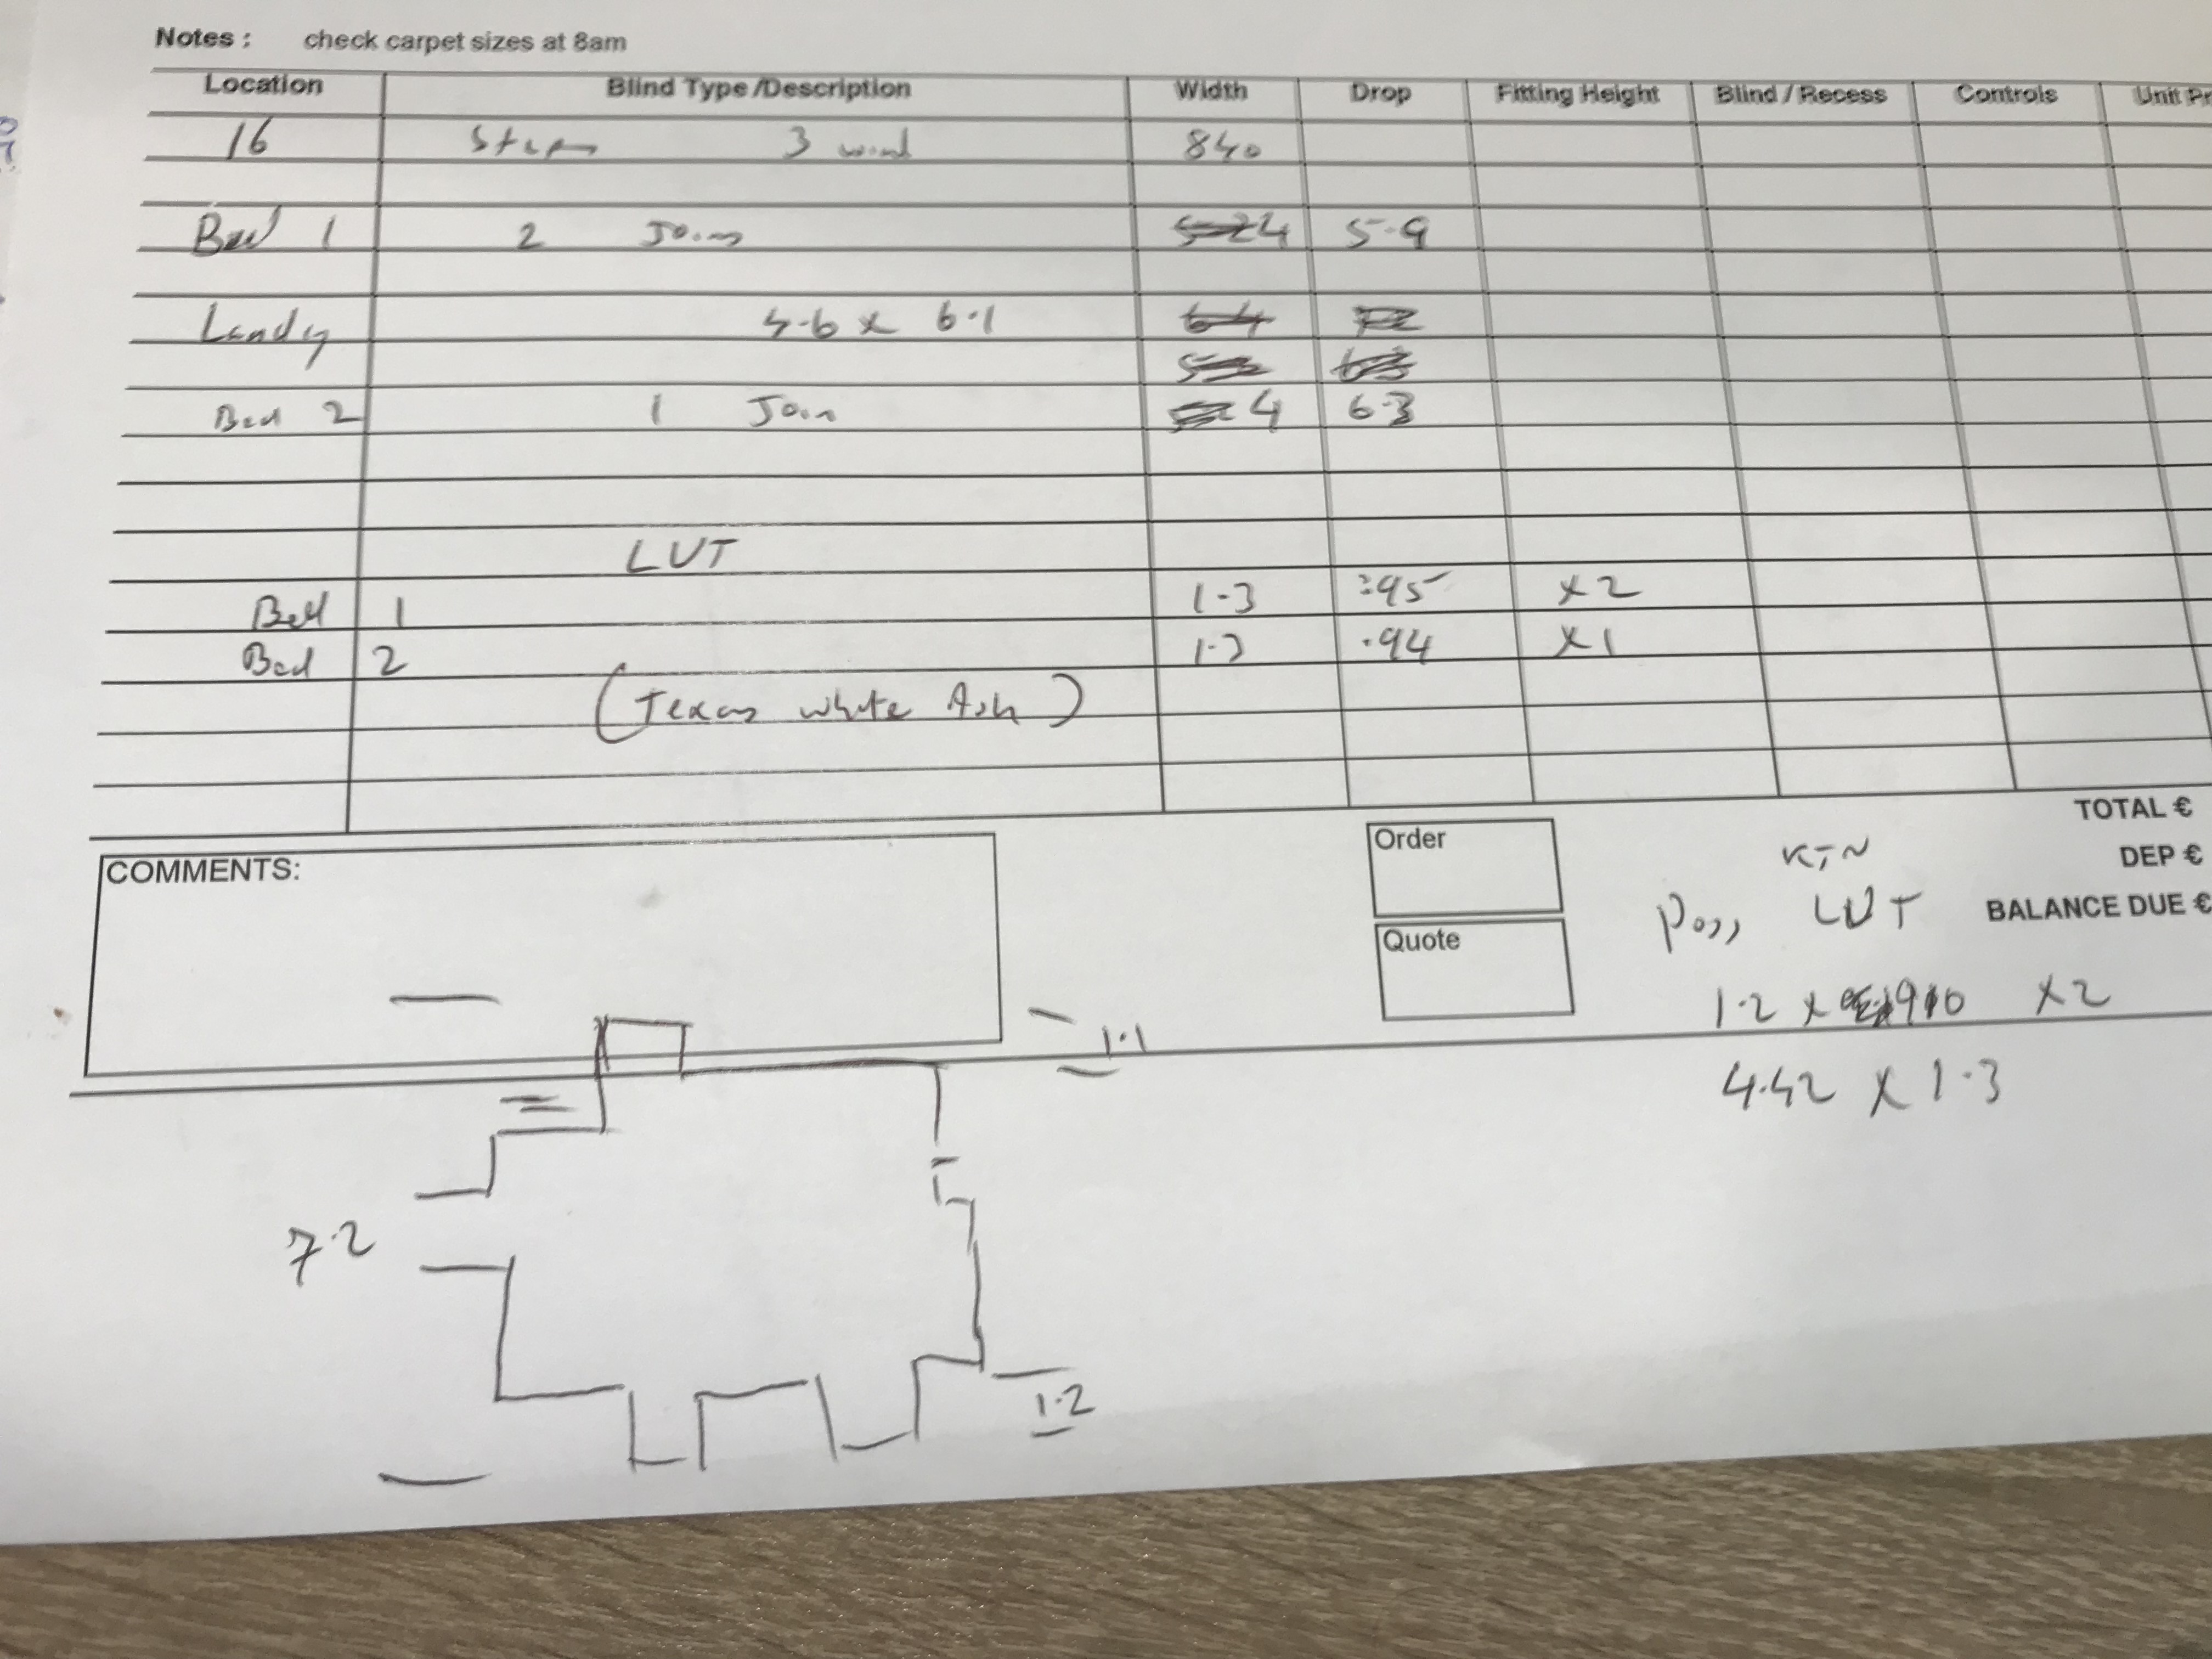 Notes : check carpet sizes at 8am
Location Blind Type /Description Width Drop Fitting Height Blind / Recess Controls Unit Pr
16 Steps 3 wind 840
Bed 1 2 Joins 4 5.9
Landg 4.6 x 6.1
Bed 2 1 Join 4 6.3
LVT
Bed 1 1.3 .95 x2
Bed 2 1.3 .94 x1
(Texas white Ash)
TOTAL €
Order
KTN
DEP €
COMMENTS:
Poss LVT
BALANCE DUE €
Quote
1.2 x 910 x2
1.1
4.42 x 1.3
7.2
1.2